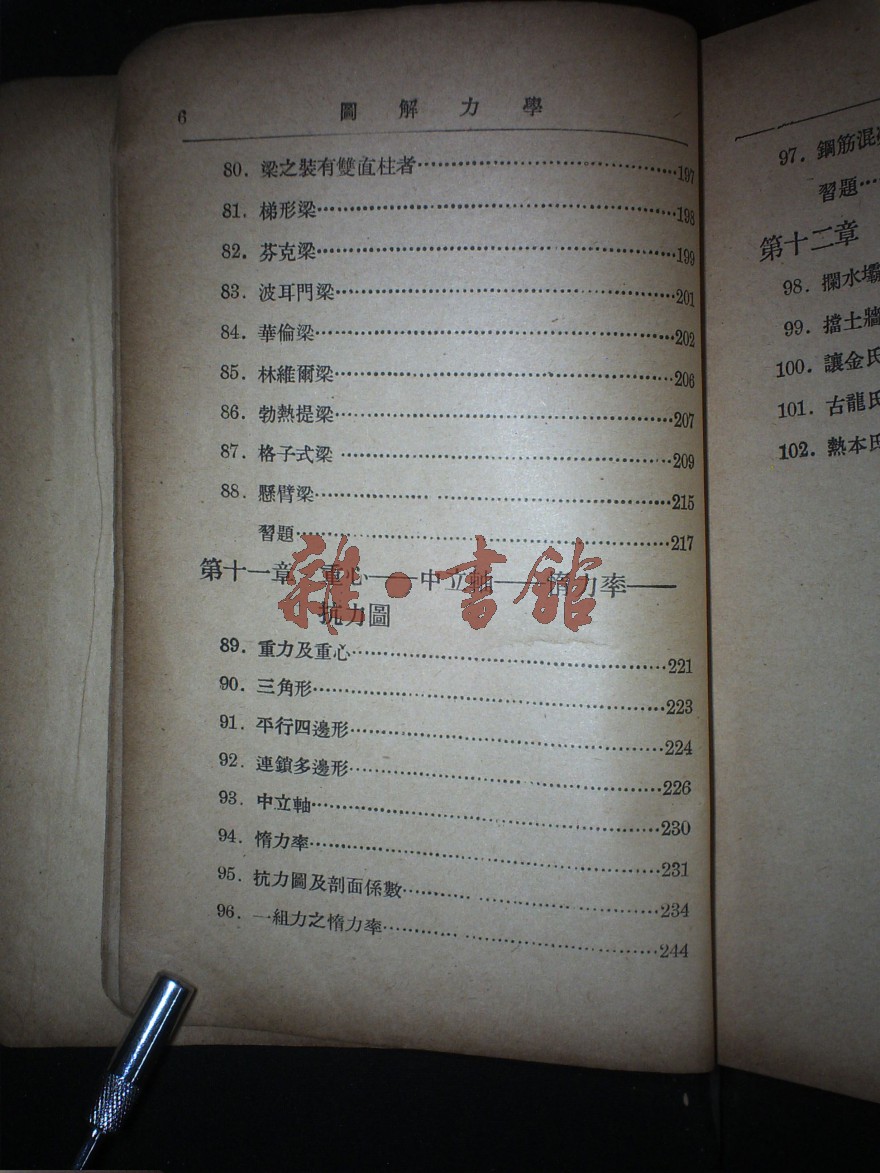 6 圖解力學
80. 梁之裝有雙直柱者……197
81. 梯形梁……198
82. 芬克梁……199
83. 波耳門梁……201
84. 華倫梁……202
85. 林維爾梁……206
86. 勃熱提梁……207
87. 格子式梁……209
88. 懸臂梁……215
習題……217
第十一章 重心——中立軸——惰力率——
抗力圖
雜·書館
89. 重力及重心……221
90. 三角形……223
91. 平行四邊形……224
92. 連鎖多邊形……226
93. 中立軸……230
94. 惰力率……231
95. 抗力圖及剖面係數……234
96. 一組力之惰力率……244
97. 鋼筋混
習題…
第十二章
98. 攔水壩
99. 擋土牆
100. 讓金氏
101. 古龍氏
102. 熱本氏